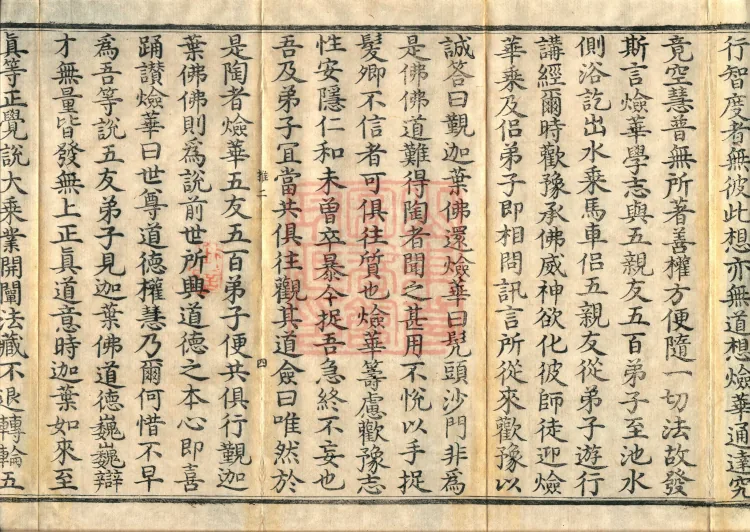 行智度者無彼此想亦無道想燄華通達究
竟空慧普無所著善權方便隨一切法故發
斯言燄華學志與五親友五百弟子至池水
側浴訖出水乘馬車侣五親友從弟子遊行
講經爾時歡豫承佛威神欲化彼師徒迎燄
華乘及侣弟子即相問訊言所從來歡豫以
誠答曰觀迦葉佛還燄華曰髠頭沙門非爲
是佛佛道難得陶者聞之甚用不悅以手捉
髮卿不信者可俱往質也燄華籌慮歡豫志
性安隱仁和未曾卒暴今捉吾急終不妄也
吾及弟子冝當共俱往觀其道僉曰唯然於
推二
四
是陶者燄華五友五百弟子便共俱行觀迦
葉佛佛則爲說前世所興道德之本心即喜
踊讃燄華曰世尊道德權慧乃爾何惜不早
爲吾等說五友弟子見迦葉佛道德巍巍辯
才無量皆發無上正真道意時迦葉如來至
真等正覺說大乘業開闡法藏不退轉輪五